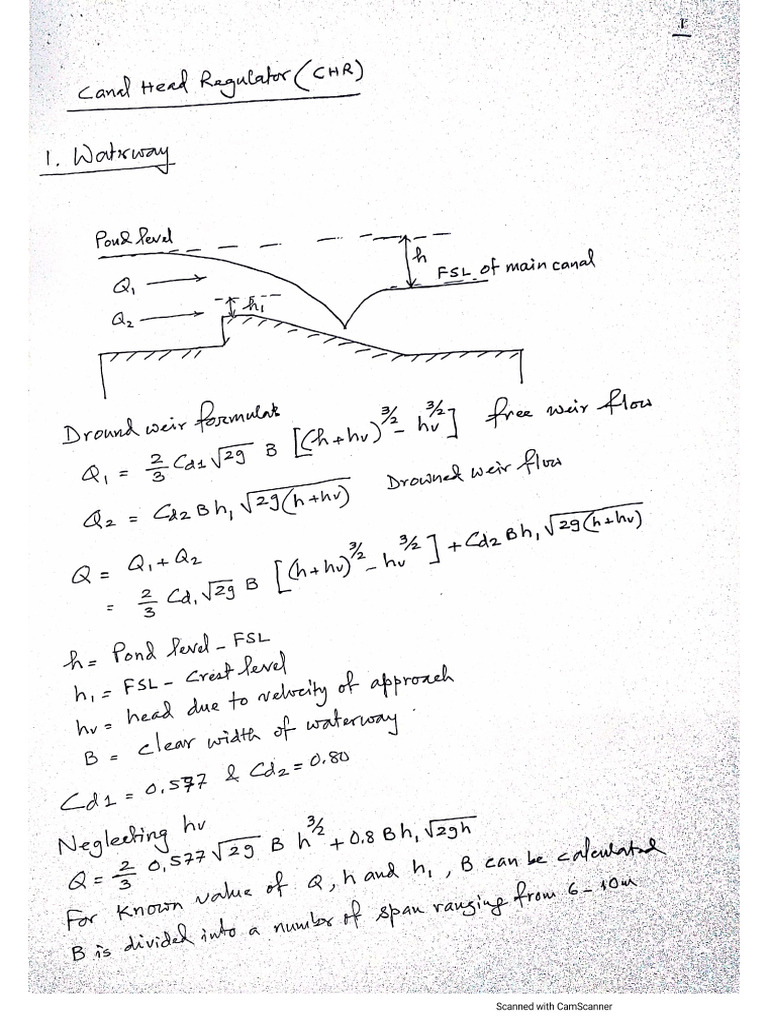 1
Canal Head Regulator (CHR)
1. Waterway
Pond level
h
FSL of main canal
Q₁
h₁
Q₂
Dround weir formulas
Q₁ = 2/3 Cd1 √2g B [(h+hv)^3/2 - hv^3/2] free weir flow
Q₂ = Cd2 B h₁ √2g(h+hv) Drowned weir flow
Q = Q₁ + Q₂
= 2/3 Cd₁ √2g B [(h+hv)^3/2 - hv^3/2] + Cd2 B h₁ √2g(h+hv)
h = Pond level - FSL
h₁ = FSL - Crest level
hv = head due to velocity of approach
B = clear width of waterway.
Cd1 = 0.577 & Cd2 = 0.80
Neglecting hv
Q = 2/3 0.577 √2g B h^3/2 + 0.8 B h₁ √2gh
For known value of Q, h and h₁, B can be calculated
B is divided into a number of span ranging from 6-10m
Scanned with CamScanner